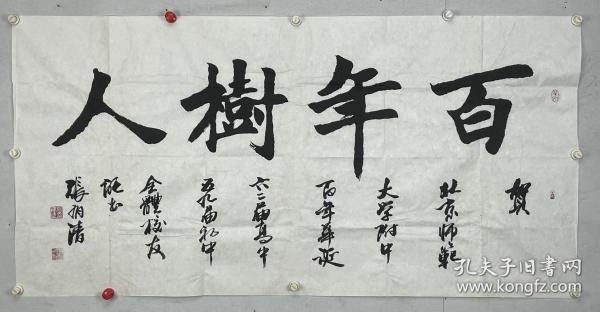 百年樹人
賀
北京師範
大学附中
百年華诞
六二届高中
五九届初中
全體校友
张有清
孔夫子旧书网
www.kongfz.com